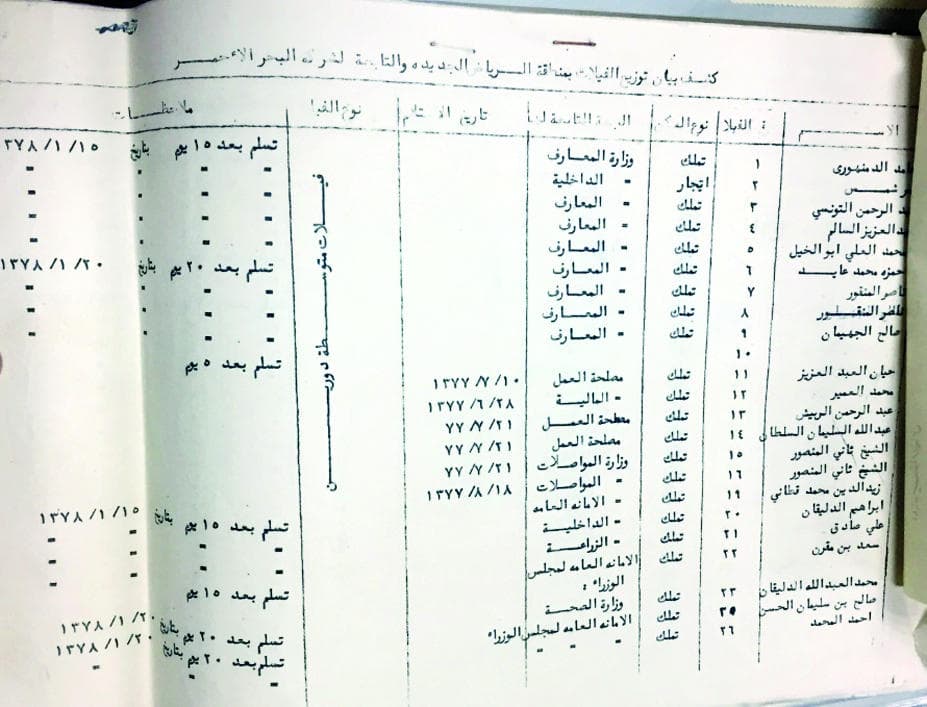 كشف بيان توزيع الفيلات بمنطقة الرياض الجديده والتابعة لشركه البحر الاحمر
الاســـــم الفيلا نوع التاريخ الاستلام نوع الفيلا ملاحظات
الدمنهورى ١ تملك وزارة المعارف تسلم بعد ١٥ يوم بتاريخ ٣٧٨/١/١٥
شمس ٢ ايجار " الداخلية " " "
الرحمن التونسي ٣ تملك " المعارف " " "
عبدالعزيز السالم ٤ تملك " المعارف " " "
محمد العلي ابو الخيل ٥ تملك " المعارف " " "
حمزه محمد عابد ٦ تملك " المعارف تسلم بعد ٢٠ يوم بتاريخ ١٣٧٨/١/٢٠
ناصر المنقور ٧ تملك " المعارف " " "
المنقور ٨ تملك " المعارف " " "
صالح الجهيمان ٩ تملك " المعارف " " "
١٠
العبد العزيز ١١ تملك مصلحة العمل ١٣٧٧/٧/١٠ تسلم بعد ٥ يوم
محمد العمير ١٢ تملك " المالية ١٣٧٧/٦/٢٨
عبد الرحمن الربيش ١٣ تملك مصلحة العمــل ٧٧/٧/٢١
عبدالله السليمان السلطان ١٤ تملك مصلحة العمل ٧٧/٧/٢١
الشيخ ثاني المنصور ١٥ تملك وزارة المواصلات ٧٧/٧/٢١
الشيخ ثاني المنصور ١٦ تملك " المواصلات ١٣٧٧/٨/١٨
زيدالدين محمد قطاني ١٩ تملك " الامانه العامه
ابراهيم الدليقان ٢٠ تملك " الداخلية تسلم بعد ١٥ يوم بتاريخ ١٣٧٨/١/١٥
علي صادق ٢١ تملك " الزراعة " " "
سعد بن مقرن ٢٢ تملك الامانه العامه لمجلس " " "
الوزراء :
محمدالعبدالله الدليقان ٢٣ تملك وزارة الصحة تسلم بعد ١٥ يوم
صالح بن سليمان الحسن تملك الامانه العامه لمجلس الوزراء تسلم بعد ٢٠ يوم بتاريخ ١٣٧٨/١/٢٠
احمد المحمد ٢٦ تملك " " " تسلم بعد ٢٠ يوم بتاريخ ١٣٧٨/١/٢٠
فيــلات متوســطة دوريــن